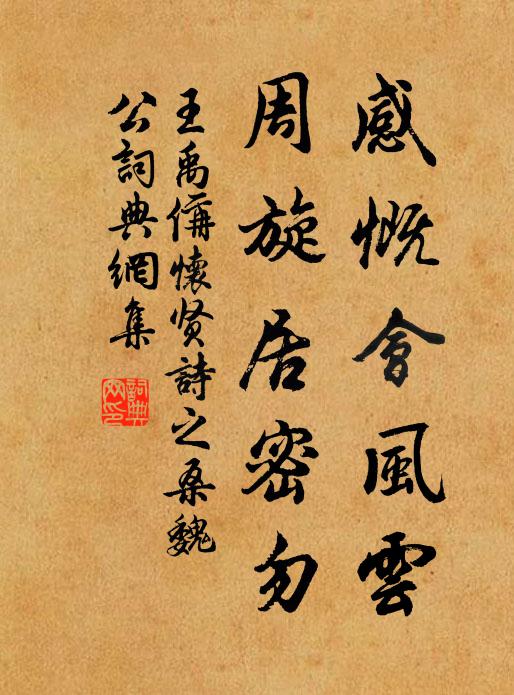 感慨會風雲
周旋居密勿
王禹偁懷贤詩之桑魏
公詞典網集
詞典
网印